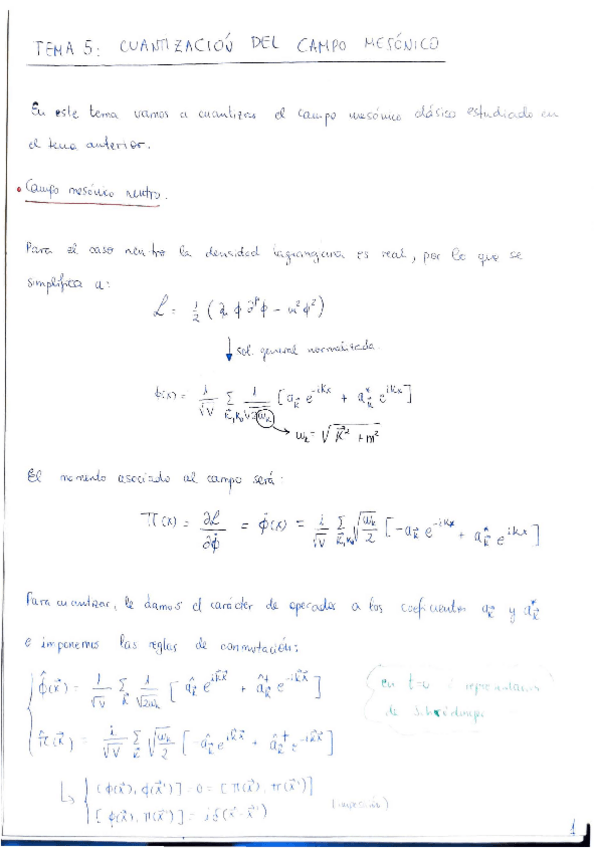 TEMA 5: CUANTIZACIÓN DEL CAMPO MESÓNICO
En este tema vamos a cuantizar el campo mesónico clásico estudiado en
el tema anterior.
• Campo mesónico neutro.
Para el caso neutro la densidad lagrangiana es real, por lo que se
simplifica a:
ℒ = 1/2 (∂μ ϕ ∂^μ ϕ − m² ϕ²)
sol. general normalizada.
ϕ(x) = 1/√V Σ_{k⃗, k₀} 1/√(2ω_k) [a_k⃗ e^{-ikx} + a*_k⃗ e^{ikx}]
ω_k = √(k⃗² + m²)
El momento asociado al campo será:
Π(x) = ∂ℒ/∂ϕ̇ = ϕ̇(x) = i/√V Σ_{k⃗, k₀} √(ω_k/2) [−a_k⃗ e^{-ikx} + a*_k⃗ e^{ikx}]
Para cuantizar, le damos el carácter de operador a los coeficientes a_k⃗ y a*_k⃗
e imponemos las reglas de conmutación:
ϕ̂(x⃗) = 1/√V Σ_k⃗ 1/√(2ω_k) [â_k⃗ e^{ik⃗x⃗} + â†_k⃗ e^{-ik⃗x⃗}]
en t=0 : representación
de Schrödinger
π̂(x⃗) = i/√V Σ_k⃗ √(ω_k/2) [−â_k⃗ e^{ik⃗x⃗} + â†_k⃗ e^{-ik⃗x⃗}]
[ϕ(x⃗), ϕ(x⃗')] = 0 = [π(x⃗), π(x⃗')]
[ϕ(x⃗), π(x⃗')] = iδ(x⃗−x⃗')
1